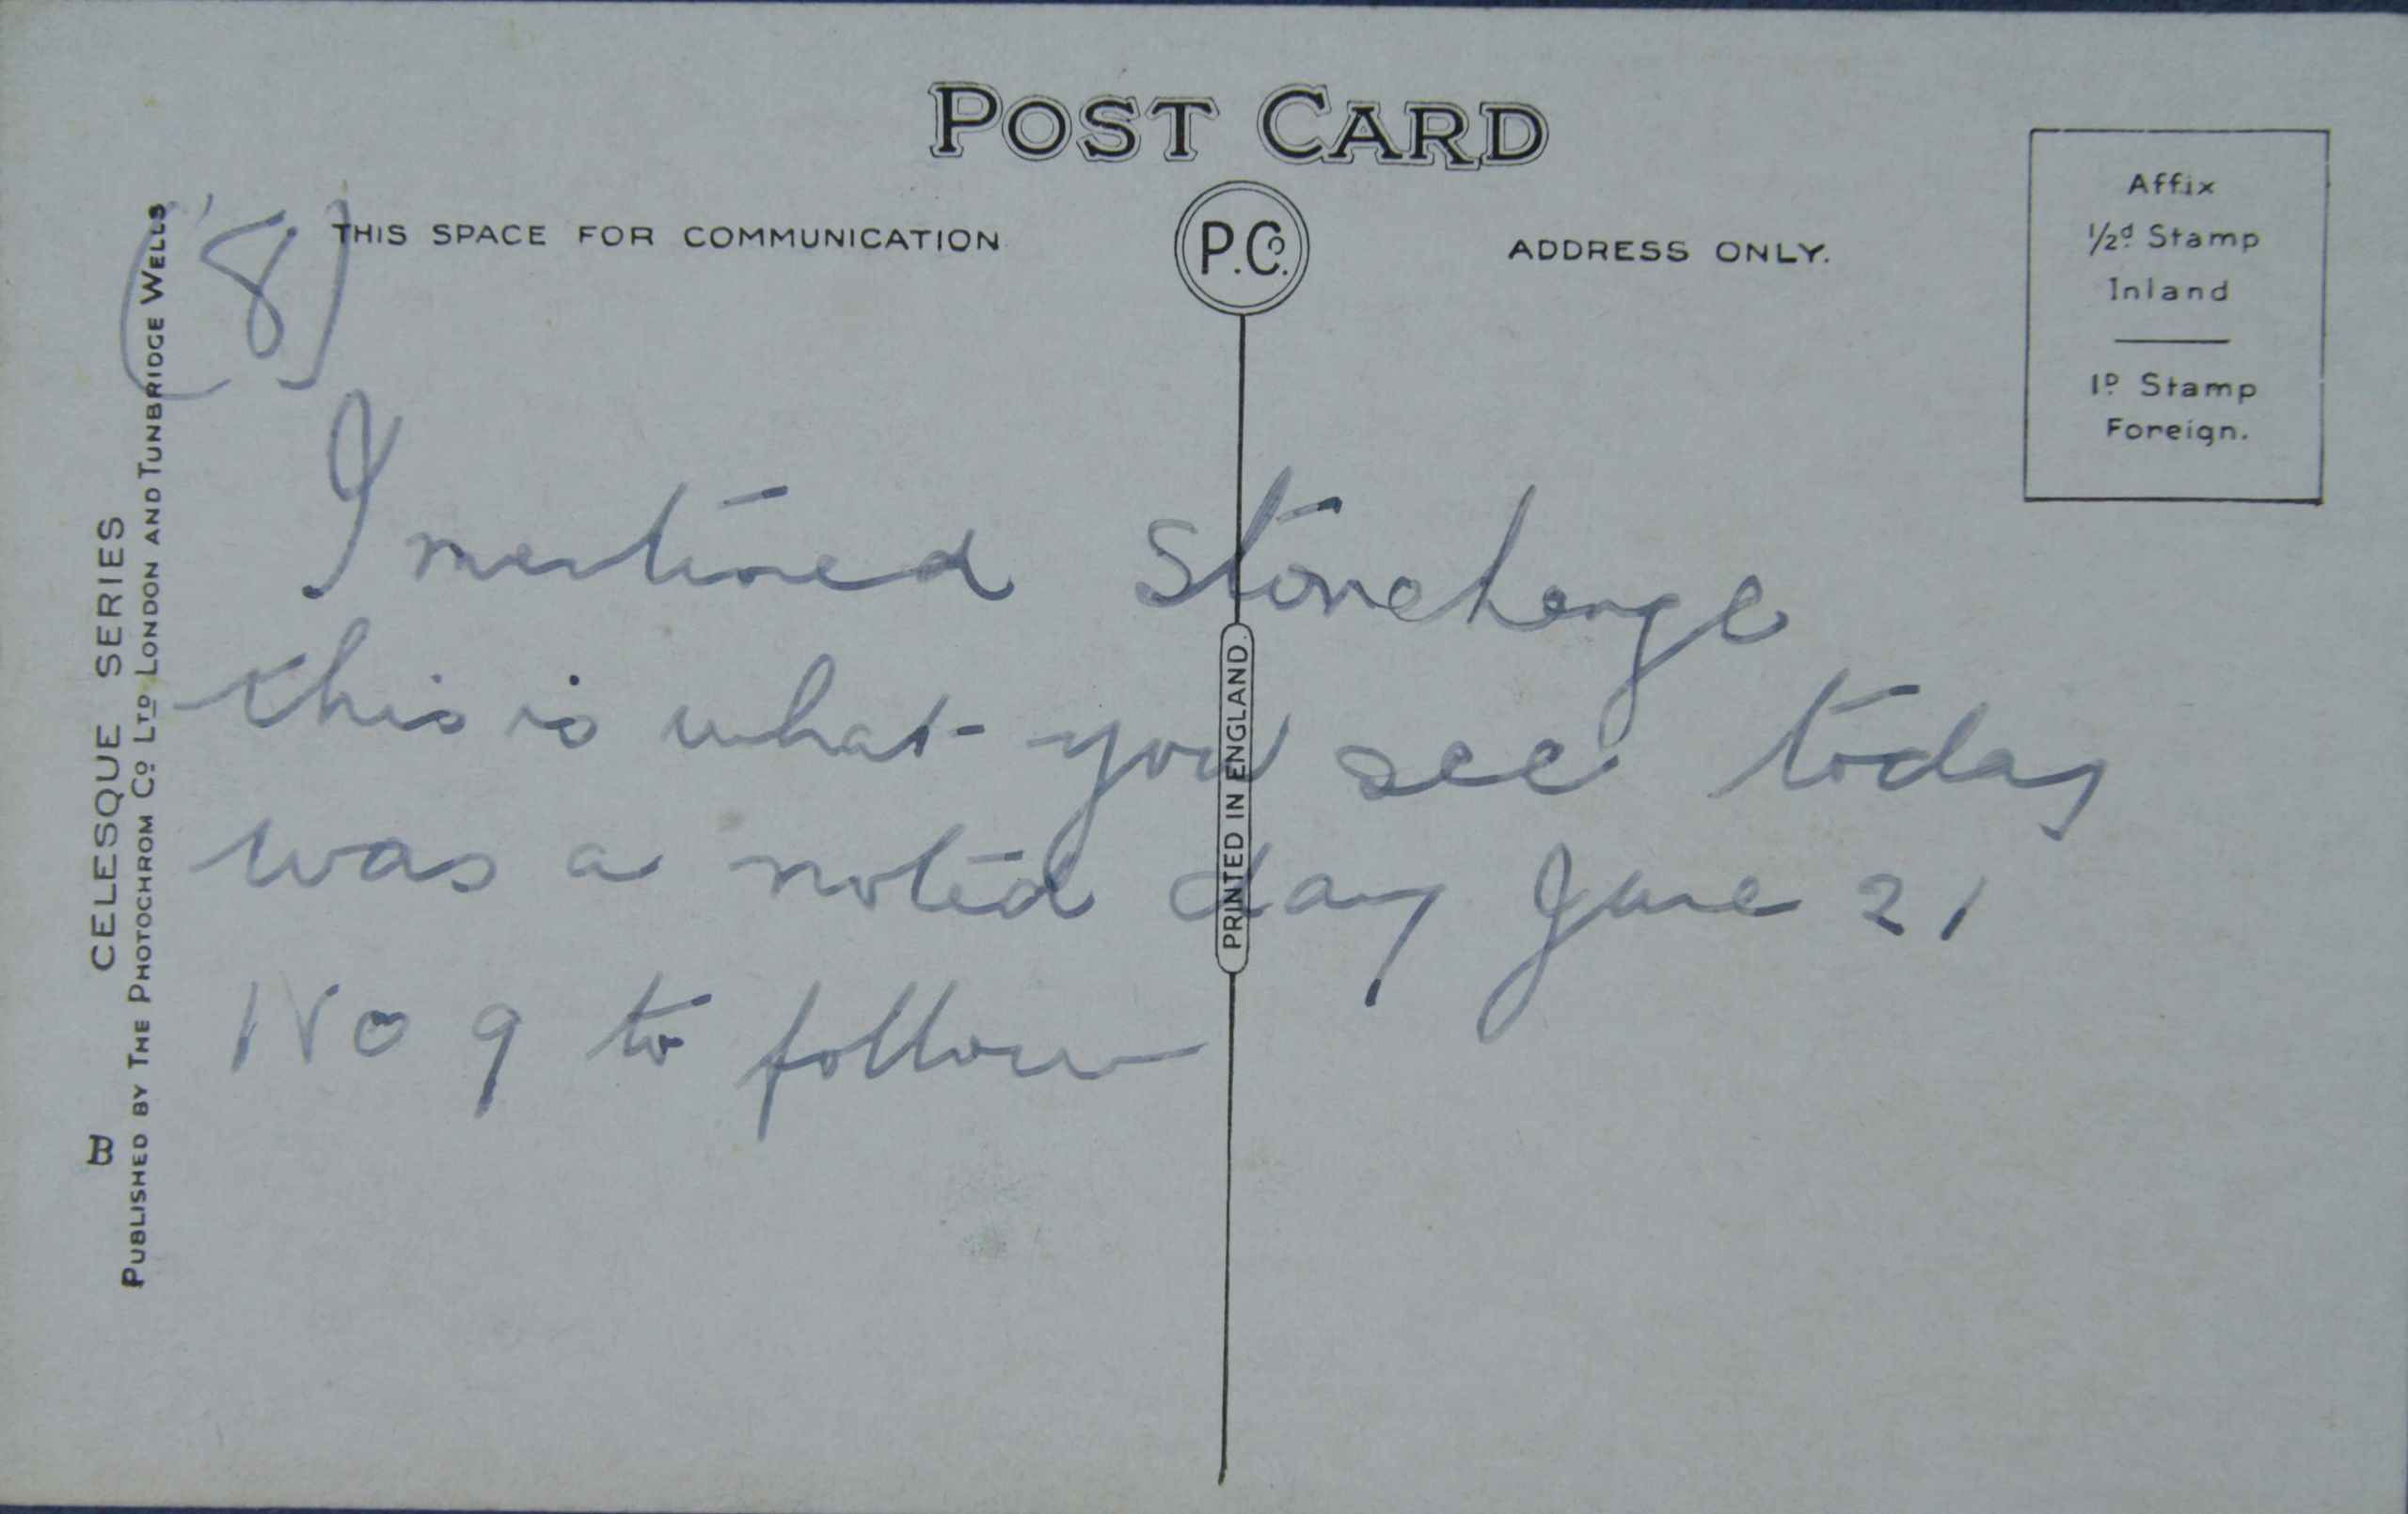 POST CARD
(8)
THIS SPACE FOR COMMUNICATION
P.Co.
ADDRESS ONLY.
Affix
1/2d Stamp
Inland
1D Stamp
Foreign.
I mentioned Stonehenge
this is what you see today
was a noted day June 21
No 9 to follow
PRINTED IN ENGLAND.
B CELESQUE SERIES
PUBLISHED BY THE PHOTOCHROM CO LTD LONDON AND TUNBRIDGE WELLS